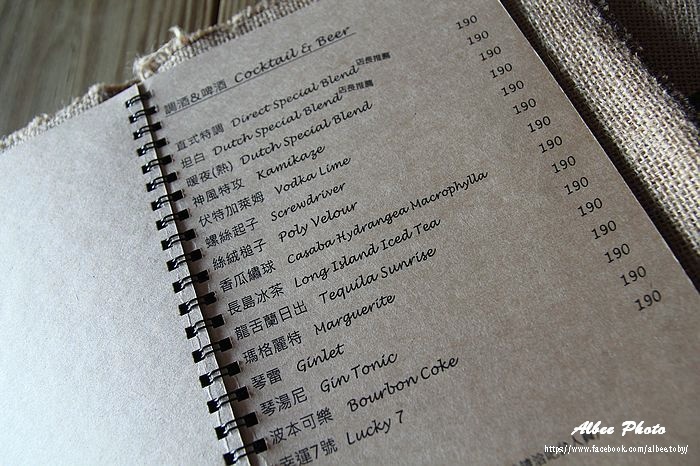 調酒&啤酒 Cocktail & Beer
直式特調 Direct Special Blend 店長推薦 190
坦白 Dutch Special Blend 店長推薦 190
暖夜(熱) Dutch Special Blend 190
神風特攻 Kamikaze 190
伏特加萊姆 Vodka Lime 190
螺絲起子 Screwdriver 190
絲絨槌子 Poly Velour 190
香瓜繡球 Casaba Hydrangea Macrophylla 190
長島冰茶 Long Island Iced Tea 190
龍舌蘭日出 Tequila Sunrise 190
瑪格麗特 Marguerite 190
琴雷 Ginlet 190
琴湯尼 Gin Tonic 190
波本可樂 Bourbon Coke
幸運7號 Lucky 7
Albee Photo
https://www.facebook.com/albeetoby/